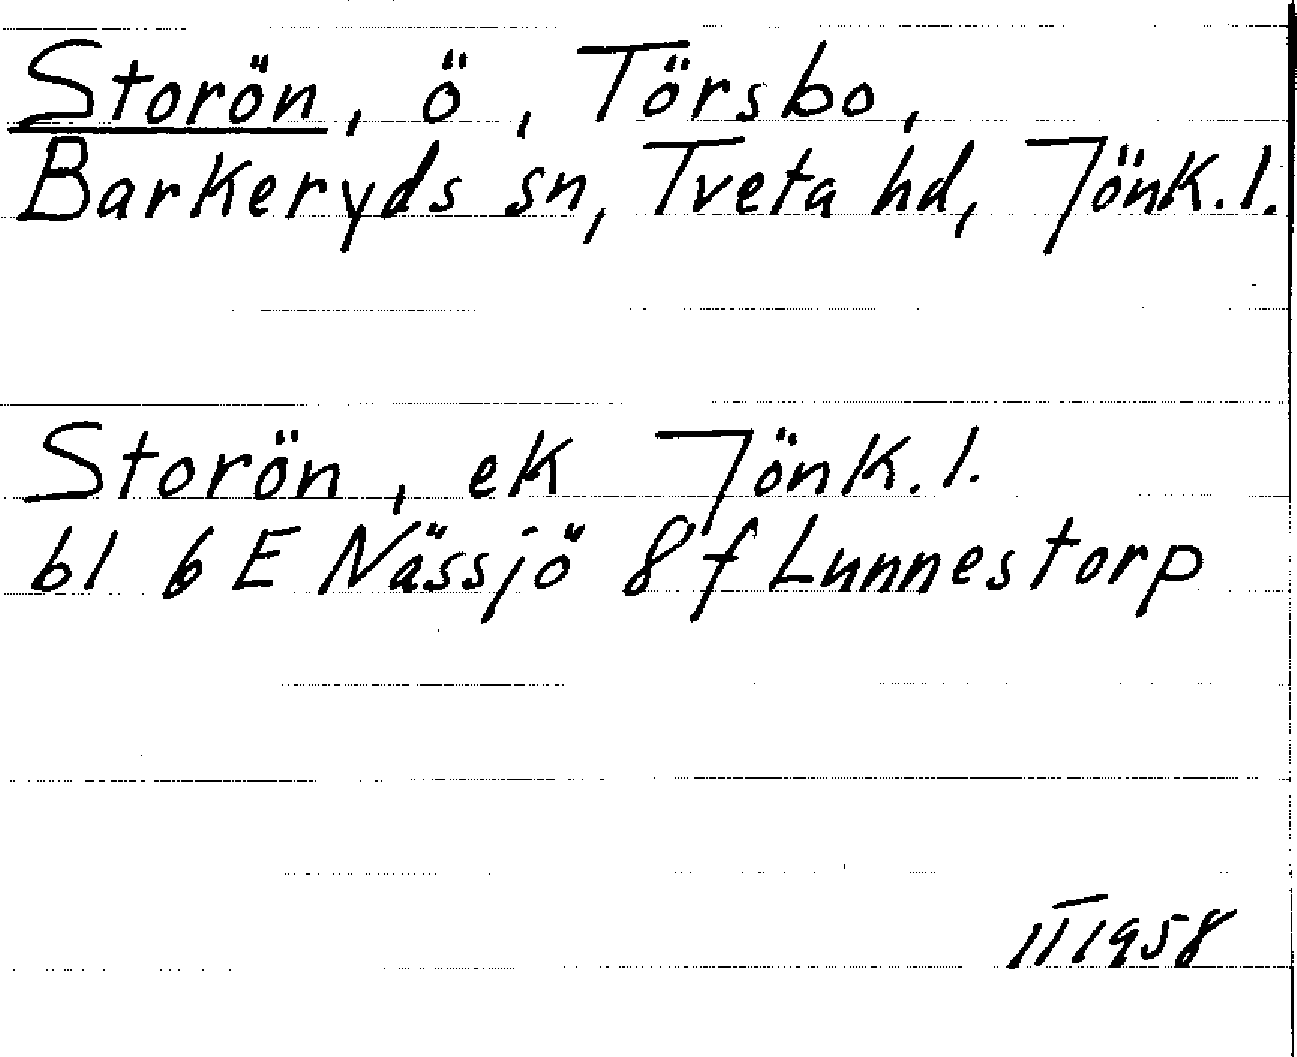 Storön, ö, Törsbo,
Barkeryds sn, Tveta hd, Jönk.l.
Storön, ek Jönk.l.
bl 6 E Nässjö 8 f Lunnestorp
II 1958